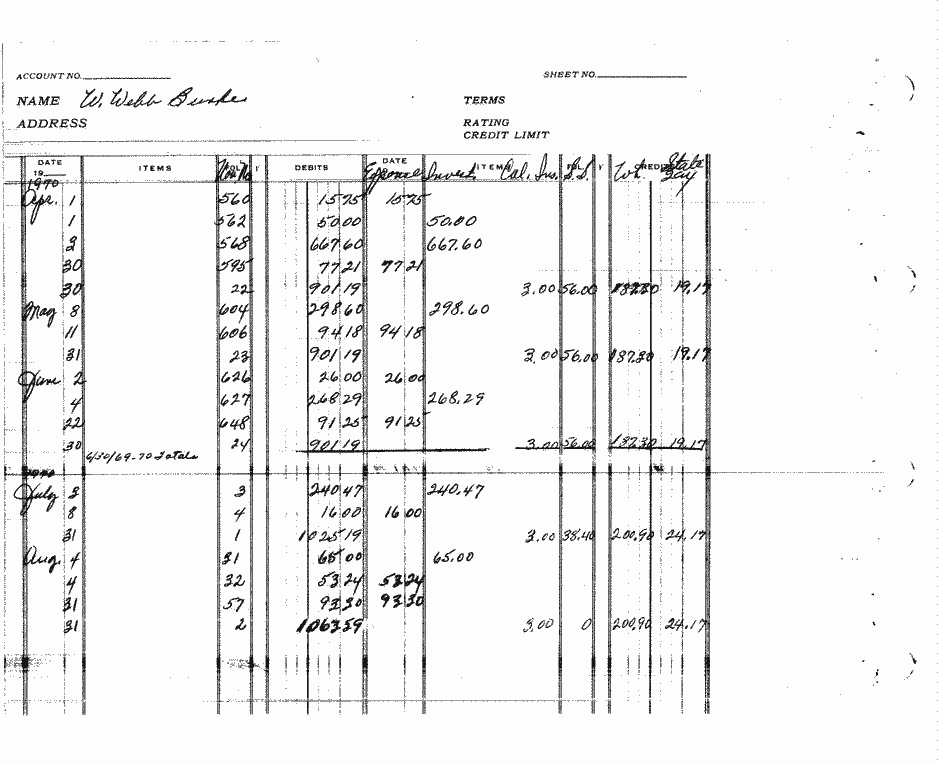 ACCOUNT NO. SHEET NO.
NAME W. Webb TERMS
ADDRESS RATING
CREDIT LIMIT
DATE 19 ITEMS DEBITS DATE ITEMS
Expense Invest. Cal. Ins. S.S. Wh. State
1970
Apr. 1 560 15 75 15 75
1 562 50.00 50.00
3 568 667.60 667.60
30 595 77 21 77 21
30 22 901 19 3.00 56.00 187.30 19.17
May 8 604 298 60 298.60
11 606 94 18 94 18
31 23 901 19 3.00 56.00 187.30 19.17
June 2 626 26.00 26.00
4 627 268 29 268.29
22 648 91 25 91 25
30 24 901 19 3.00 56.00 187.30 19.17
6/30/69-70 Totals
July 3 3 240 47 240.47
8 4 16 00 16 00
31 1 1025 19 3.00 38.40 200.90 24.17
Aug. 4 31 65 00 65.00
4 32 53 24 53 24
31 57 93 30 93 30
31 2 1063 59 3.00 0 200.90 24.17